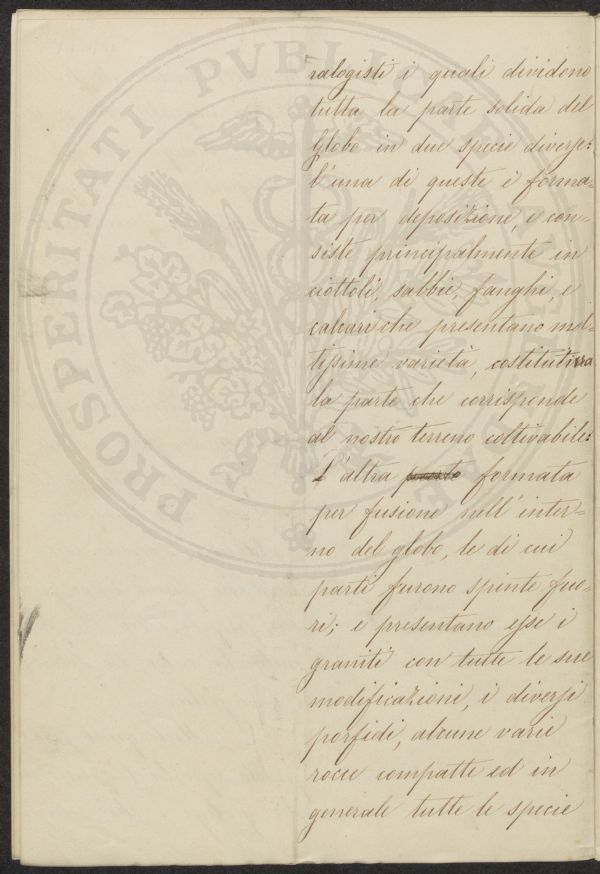 ralogisti i quali dividono
tutta la parte solida del
Globo in due specie diverse:
l'una di queste è forma-
ta per deposizione, e con-
siste principalmente in
ciottoli, sabbie, fanghi, e
calcari che presentano mol-
tissime varietà,
la parte che corrisponde
al nostro terreno coltivabile:
L'altra formata
per fusione nell'inter-
no del globo, le di cui
parti furono spinte fuo-
ri; e presentano esse i
graniti con tutte le sue
modificazioni, i diversi
porfidi, alcune varie
rocce compatte ed in
generale tutte le specie
PROSPERITATI PVBLICAE